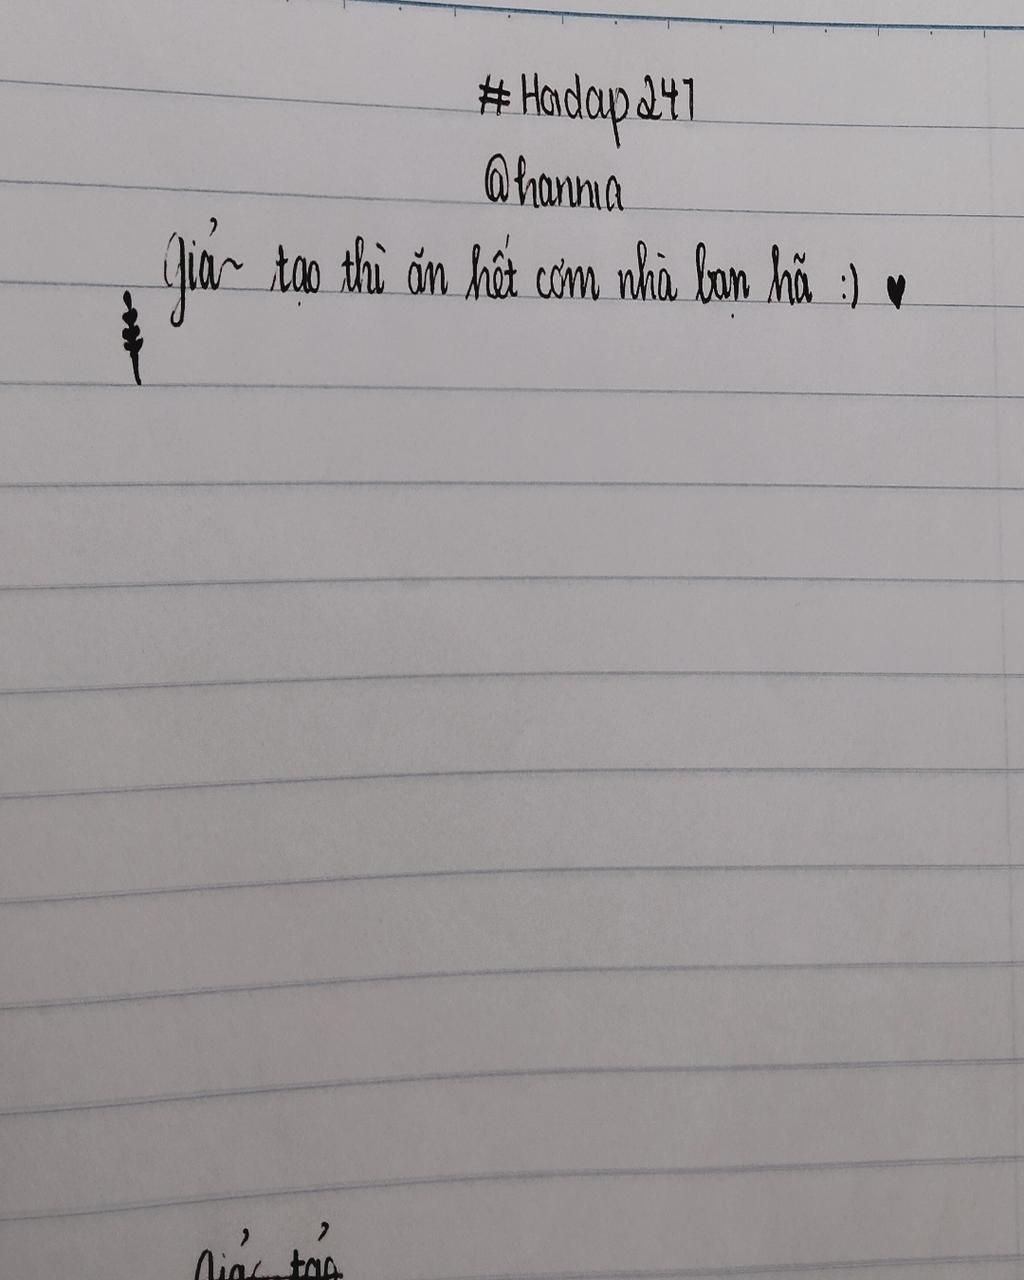 #Hadap247
@hannia
Giả~ tạo thì ăn hết cơm nhà bạn hã :) ♥